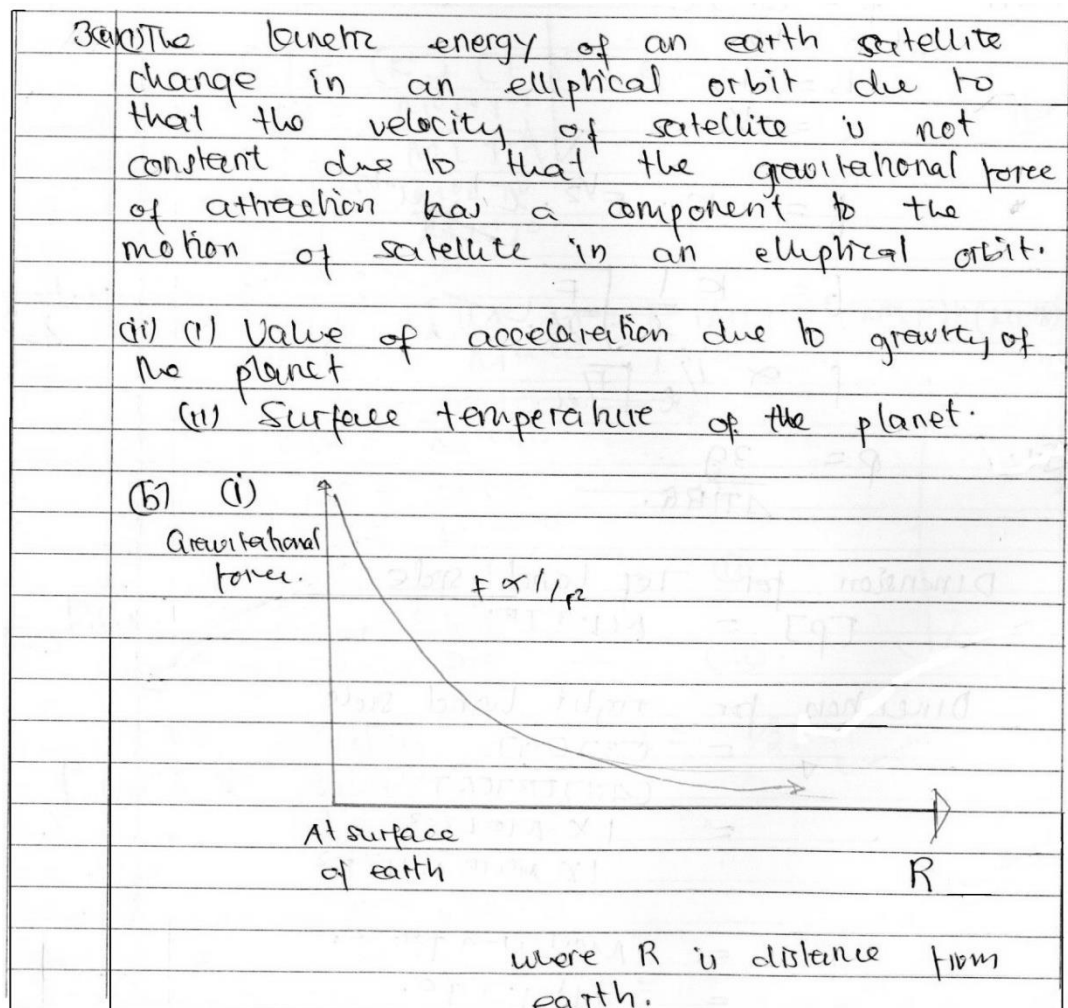 3(a)(i) The kinetic energy of an earth satellite
change in an elliptical orbit due to
that the velocity of satellite is not
constant due to that the gravitational force
of attraction has a component to the
motion of satellite in an elliptical orbit.
(ii) (i) Value of accelaration due to gravity of
the planet
(ii) Surface temperature of the planet.
(b) (i)
Gravitational
force.
F ∝ 1/r²
At surface
of earth
R
where R is distance from
earth.